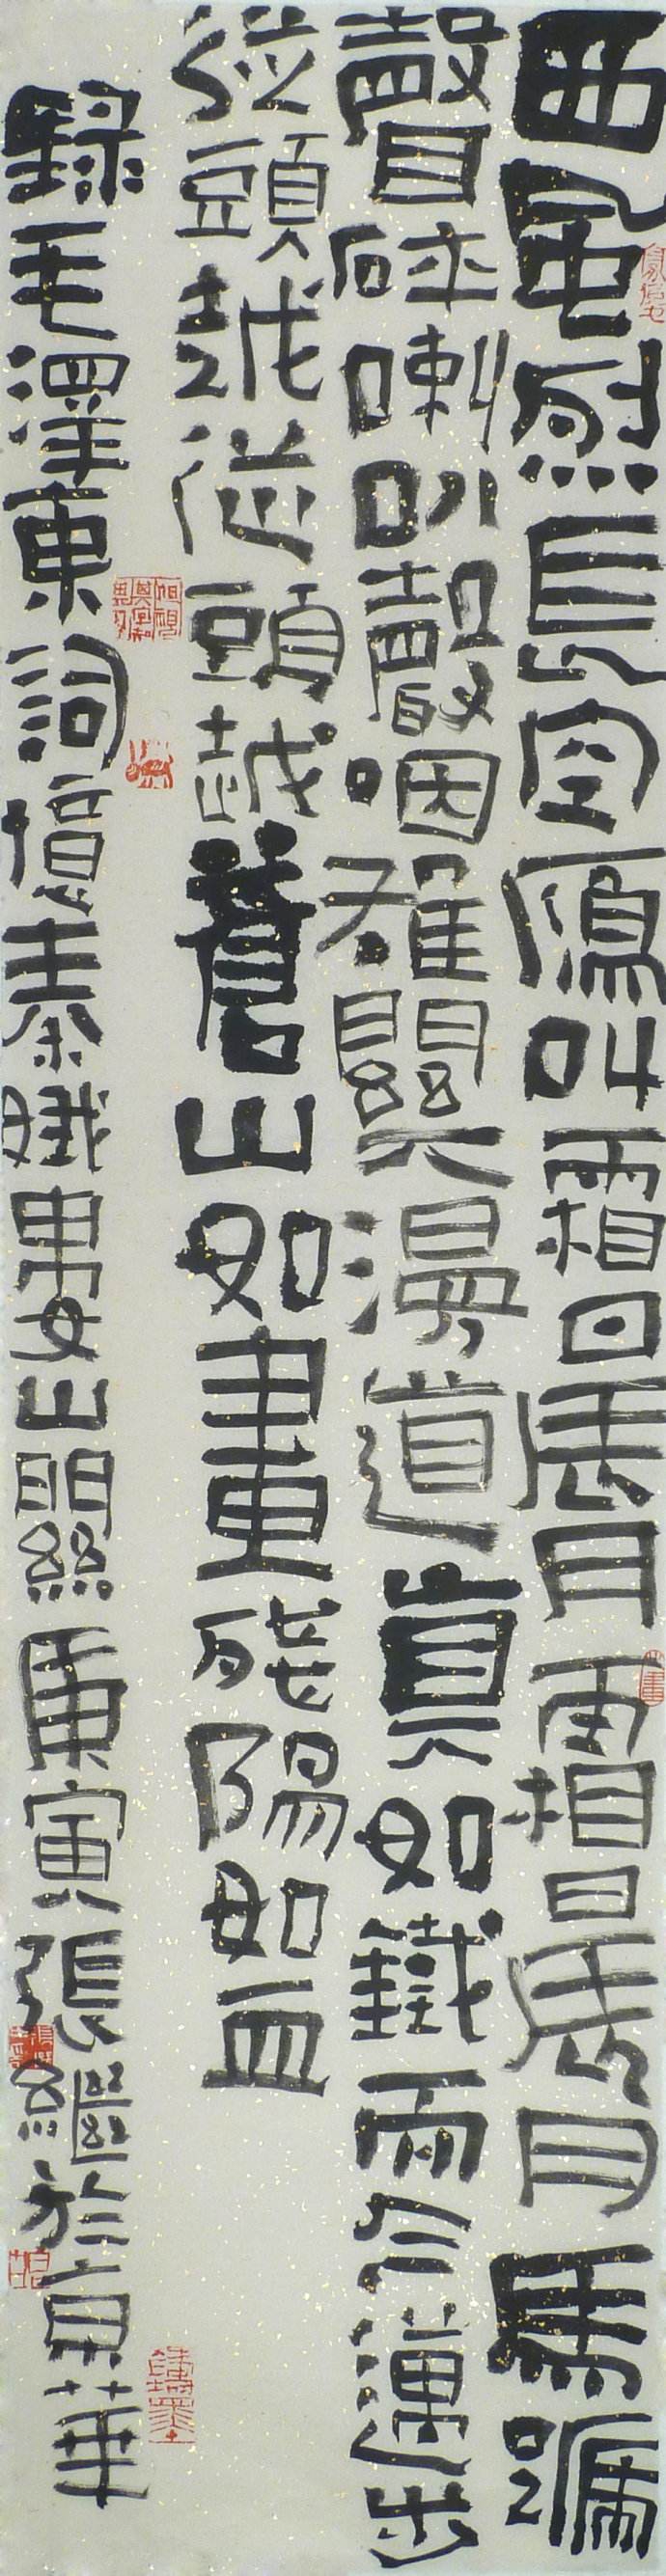 西風烈長空鴈叫霜晨月霜晨月馬蹄
聲碎喇叭聲咽雄關漫道真如鐵而今邁步
從頭越從頭越蒼山如畫殘陽如血
錄毛澤東詞憶秦娥婁山關庚寅張繼於京華